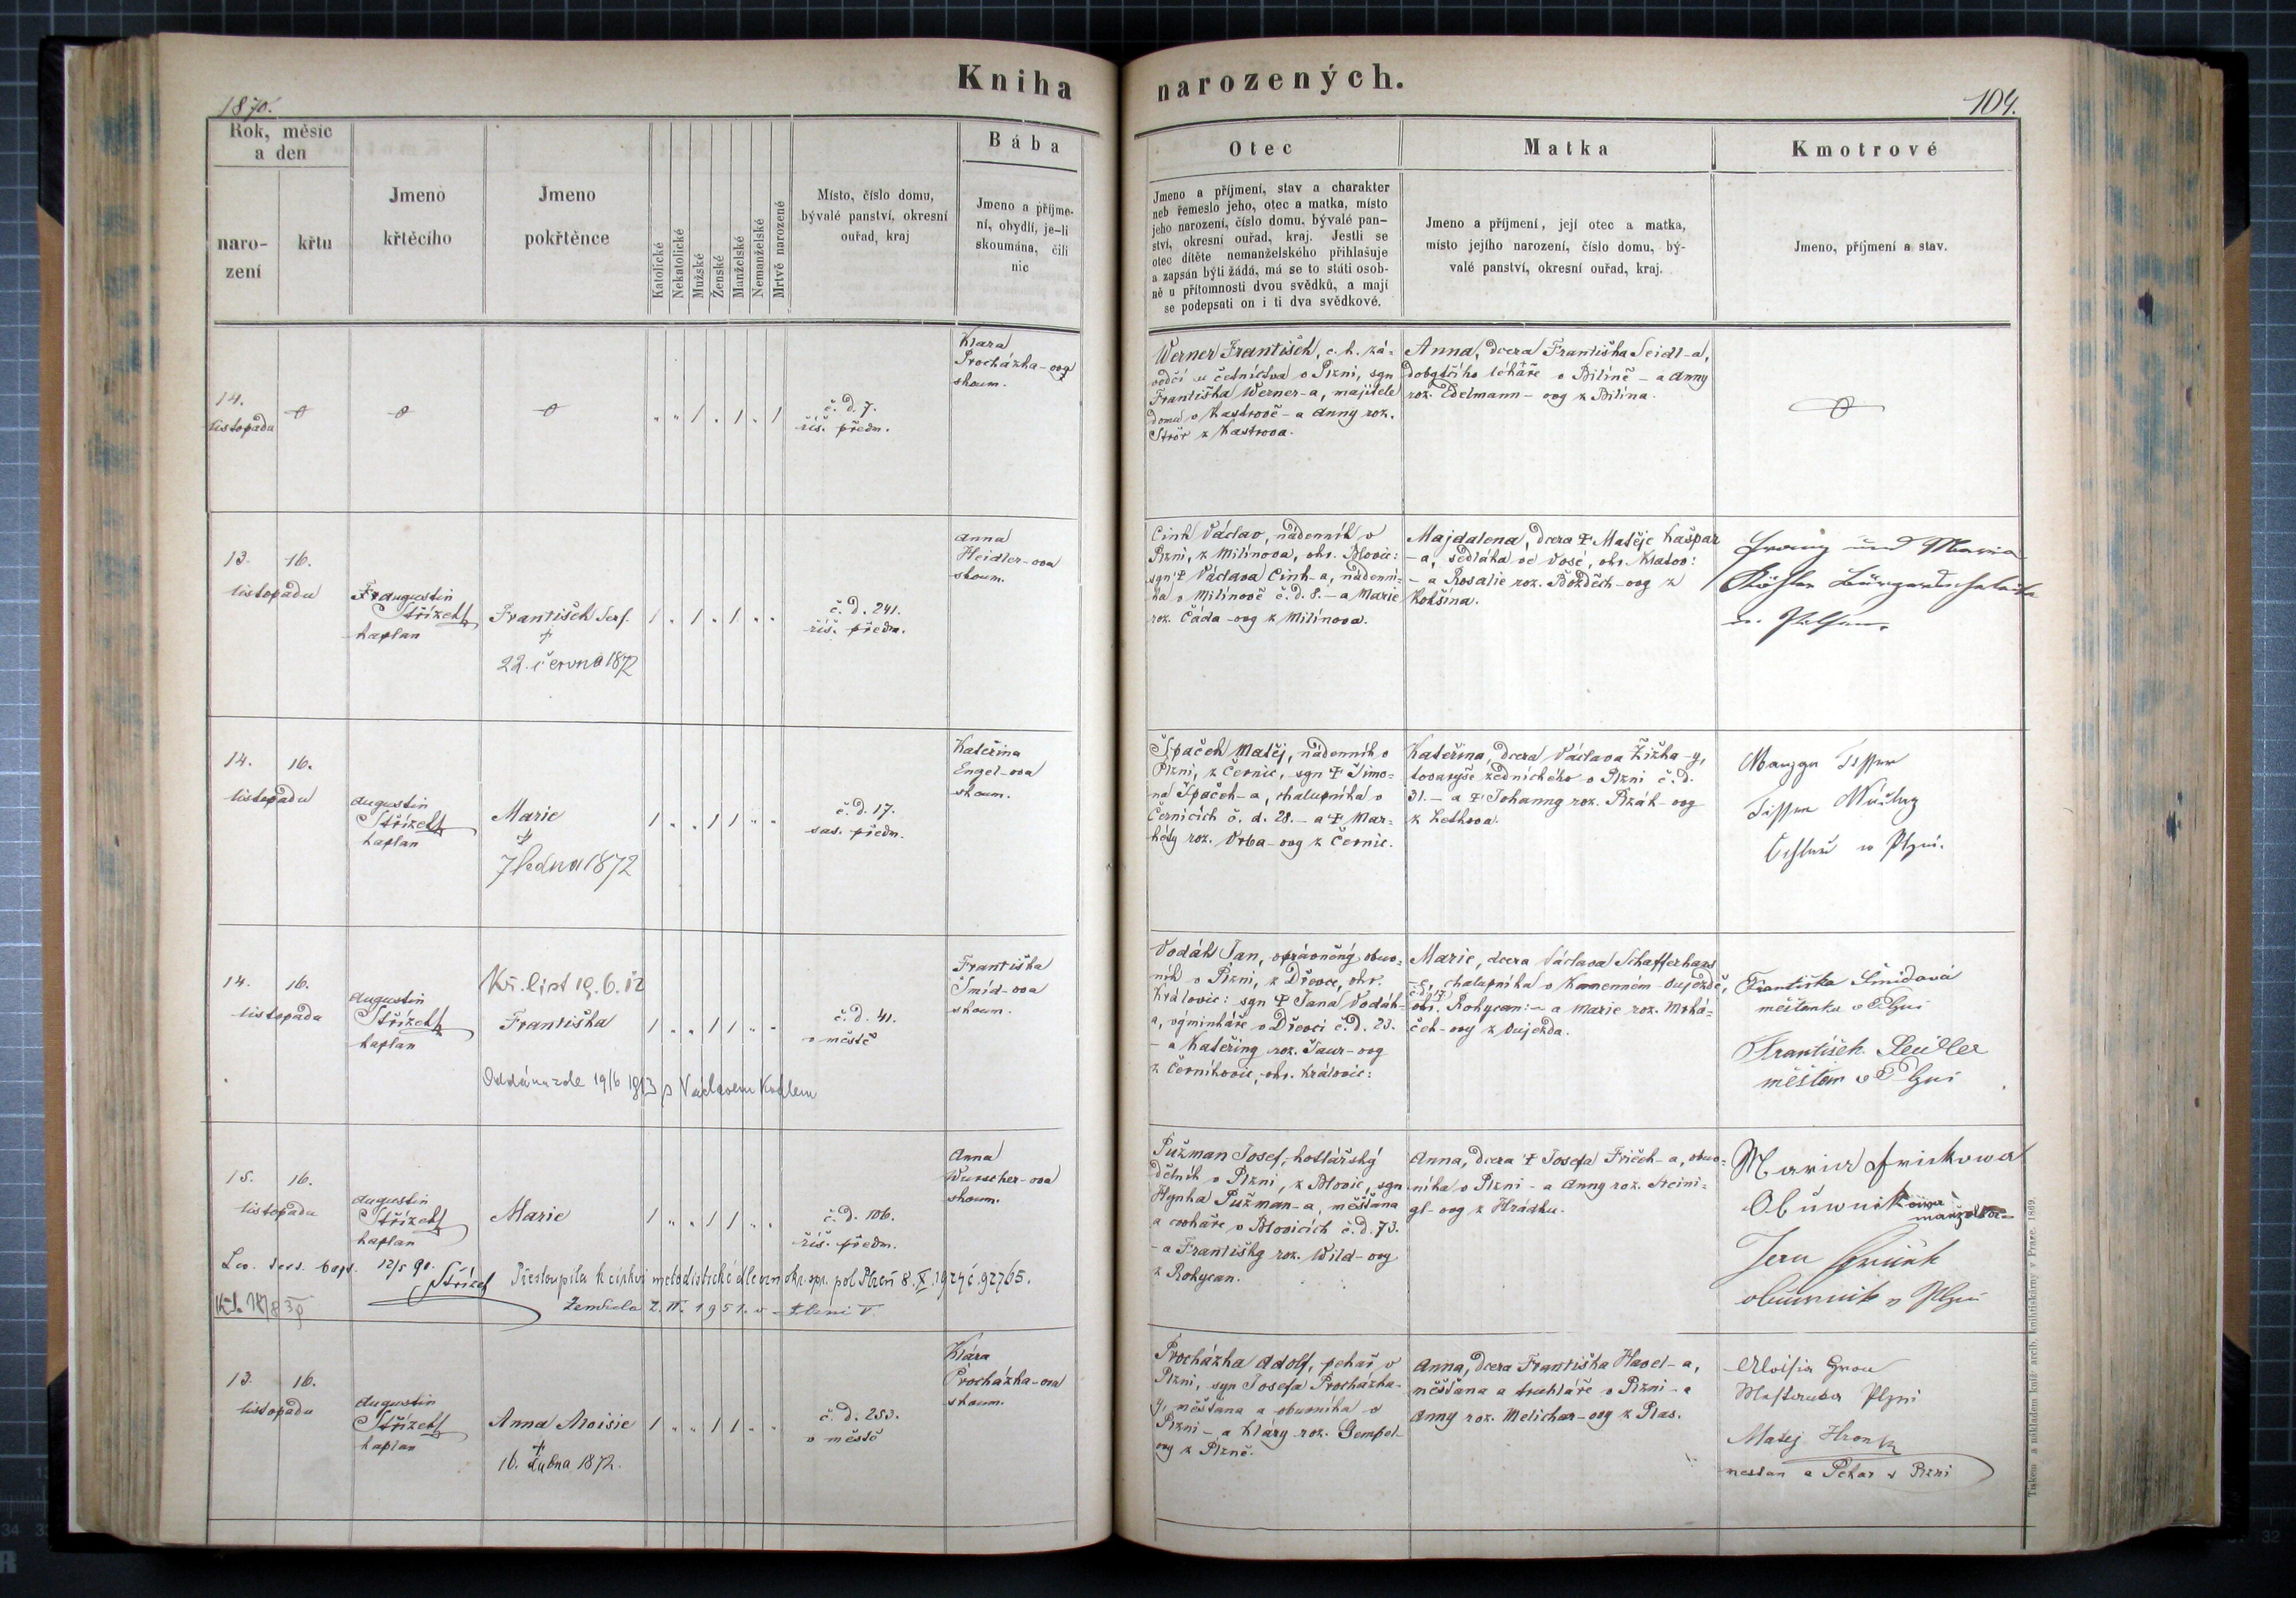 Kniha narozených.
1870.
104.
Rok, měsíc
a den
naro-
zení
křtu
Jmeno
křtěcího
Jmeno
pokřtěnce
Katolické
Nekatolické
Mužské
Ženské
Manželské
Nemanželské
Mrtvě narozené
Místo, číslo domu,
bývalé panství, okresní
ouřad, kraj
Bába
Jmeno a příjme-
ní, obydlí, je-li
skoumána, čili
nic
Otec
Jmeno a příjmení, stav a charakter
neb řemeslo jeho, otec a matka, místo
jeho narození, číslo domu, bývalé pan-
ství, okresní ouřad, kraj. Jestli se
otec dítěte nemanželského přihlašuje
a zapsán býti žádá, má se to státi osob-
ně u přítomnosti dvou svědků, a mají
se podepsati on i ti dva svědkové.
Matka
Jmeno a příjmení, její otec a matka,
místo jejího narození, číslo domu, bý-
valé panství, okresní ouřad, kraj.
Kmotrové
Jmeno, příjmení a stav.
14.
listopadu
" " / . / . /
č. d. 7.
říš. předm.
Klara
Procházka-ová
skoum.
Werner František, c. k. zá-
vodčí u četnictva v Plzni, syn
Františka Werner-a, majitele
domu v Kastrově - a Anny roz.
Strör z Kastrova.
Anna, dcera Františka Seidl-a,
dobytčího lékaře v Bílině - a Anny
roz. Edelmann-ovy z Bílina.
13. 16.
listopadu
Fr. Augustin
Střízek
kaplan
František Ser.
+
22. června 1872
/ " / . / . .
č. d. 241.
říš. předm.
Anna
Heidler-ova
skoum.
Cink Václav, nádenník v
Plzni, z Milínova, okr. Blovic:
syn † Václava Cink-a, nádenní-
ka v Milínově č. d. 8. - a Marie
roz. Čáda-ovy z Milínova.
Majdalena, dcera † Matěje Kašpar
-a, sedláka ve Vosí, okr. Klatov:
- a Rosalie roz. Božděch-ovy z
Kokšína.
Franz und Maria
14. 16.
listopadu
Augustin
Střízek
kaplan
Marie
+
7 ledna 1872
/ " " / / " "
č. d. 17.
sas. předm.
Kateřina
Engel-ova
skoum.
Špaček Matěj, nádenník v
Plzni, z Černic, syn † Šimo-
na Špaček-a, chalupníka v
Černicích č. d. 28. - a † Mar-
kéty roz. Vrba-ovy z Černic.
Kateřina, dcera Václava Žižka-y,
tovaryše zednického v Plzni č. d.
31. - a † Johanny roz. Plzák-ovy
z Letkova.
w Plzni.
14. 16.
listopadu
Augustin
Střízek
kaplan
Kř. list 19.6.12
Františka
Oddána zde 19/6 1813 s Václavem Kodlem
/ " " / / " "
č. d. 41.
v městě
Františka
Šmíd-ova
skoum.
Vodák Jan, oprávněný obuv-
ník v Plzni, z Dřevce, okr.
Královic: syn † Jana Vodák-
a, výminkáře v Dřevci č. d. 23.
- a Kateřiny roz. Šaur-ovy
z Černíkovic, okr. Královic:
Marie, dcera Václava Schafferhans
-e, chalupníka v Kamenném-oujezdě,
č. d. 7
okr. Rokycan: - a Marie roz. Mrhá-
ček-ovy z Oujezda.
Františka Šmidová
měštanka v Plzni
František Seidler
měštan v Plzni
15. 16.
listopadu
Augustin
Střízek
kaplan
Marie
/ " " / / " .
č. d. 106.
říš. předm.
Anna
Wurscher-ova
skoum.
12/5 90.
Přestoupila k církvi metodistické dle ozn. okr. spr. pol. Plzeň 8. X. 1927 č. 92765.
Zemřela 2. II. 1951 v Plzni V.
Pužman Josef, kotlářský
dělník v Plzni, z Blovic, syn
Hynka Pužman-a, měšťana
a cvokaře v Blovicích č. d. 73.
- a Františky roz. Wild-ovy
z Rokycan.
Anna, dcera † Josefa Friček-a, obuv-
níka v Plzni - a Anny roz. Steini-
gl-ovy z Hrádku.
Maria Frickowa
Obuwnikowa manželka
Jan
obuwnik v Plzni
13. 16.
listopadu
Augustin
Střízek
kaplan
Anna Aloisie
+
16. dubna 1872.
/ " " / / " "
č. d. 253.
v městě
Klára
Procházka-ova
skoum.
Procházka Adolf, pekař v
Plzni, syn Josefa Procházka-
y, měšťana a obuvníka v
Plzni - a Kláry roz. Gempel-
ovy z Plzně.
Anna, dcera Františka Havel-a,
měšťana a truhláře v Plzni - a
Anny roz. Melichar-ovy z Plas.
Aloisia
Plzni
Matěj Hronk
mestan a Pekar v Plzni
Tiskem a nákladem kníž. arcib. knihtiskárny v Praze. 1869.